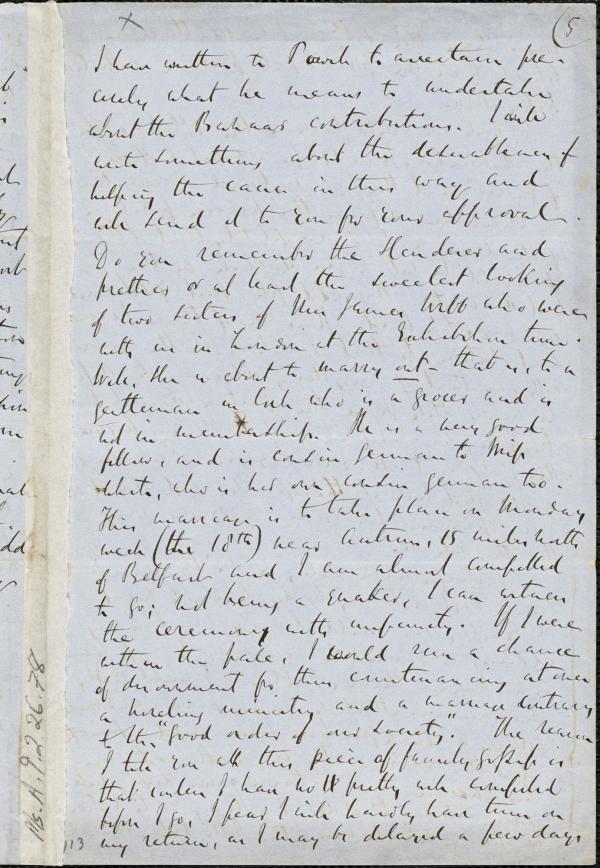 5
I have written to Powell to ascertain pre-
cisely what he means to undertake
about the Bazaar contributions. I will
write something about the desirableness of
helping the cause in this way and
will send it to you for your approval.
Do you remember the slenderer and
prettier or at least the sweetest looking
of two sisters of Mrs James Webb who were
with us in London at the Exhibition time.
Well, she is about to marry out - that is, to a
gentleman in Cork who is a grocer and is
not in membership. He is a very good
fellow, and is cousin german to Miss
White, who is her own cousin german too.
This marriage is to take place on Monday
week (the 18th) near Antrim, 15 miles north
of Belfast and I am almost compelled
to go; not being a quaker, I can witness
the ceremony with impunity. If I were
within the pale, I would run a chance
of disownment for thus countenancing at once
a hireling ministry and a marriage contrary
to the "good order of our society". The reason
I tell you all this piece of family gossip is
that unless I have no II pretty well completed
before I go, I fear I will hardly have time on
my return, as I may be delayed a few days
Ms. A. 9. 2. 26. 78
113